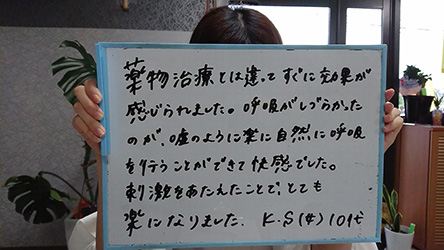 薬物治療とは違ってすぐに効果が
感じられました。呼吸がしづらかった
のが、嘘のように楽に自然に呼吸
を行うことができて快感でした。
刺激をあたえたことで、とても
楽になりました. K.S(女)10代